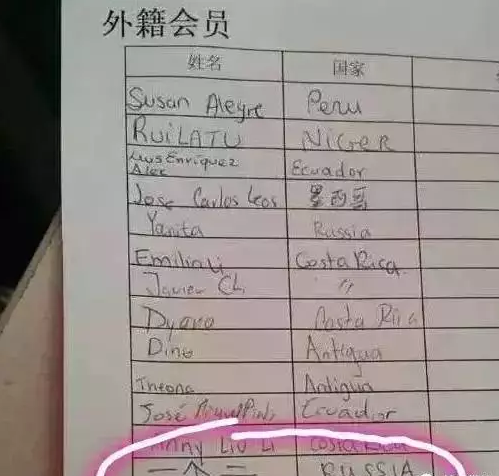 外籍会员
姓名 国家
Susan Alegre Peru
RUiLATU NiGER
Enriquez Ecuador
Alex
Jose Carlos Leos 墨西哥
Yanita Russia
Emilia Li Costa Rica
Javier CL "
Dyara Costa Rica
Dino Antigua
Antigua
José Ecuador
Anny Liu Li Costa Rica
一个二 RUSSIA